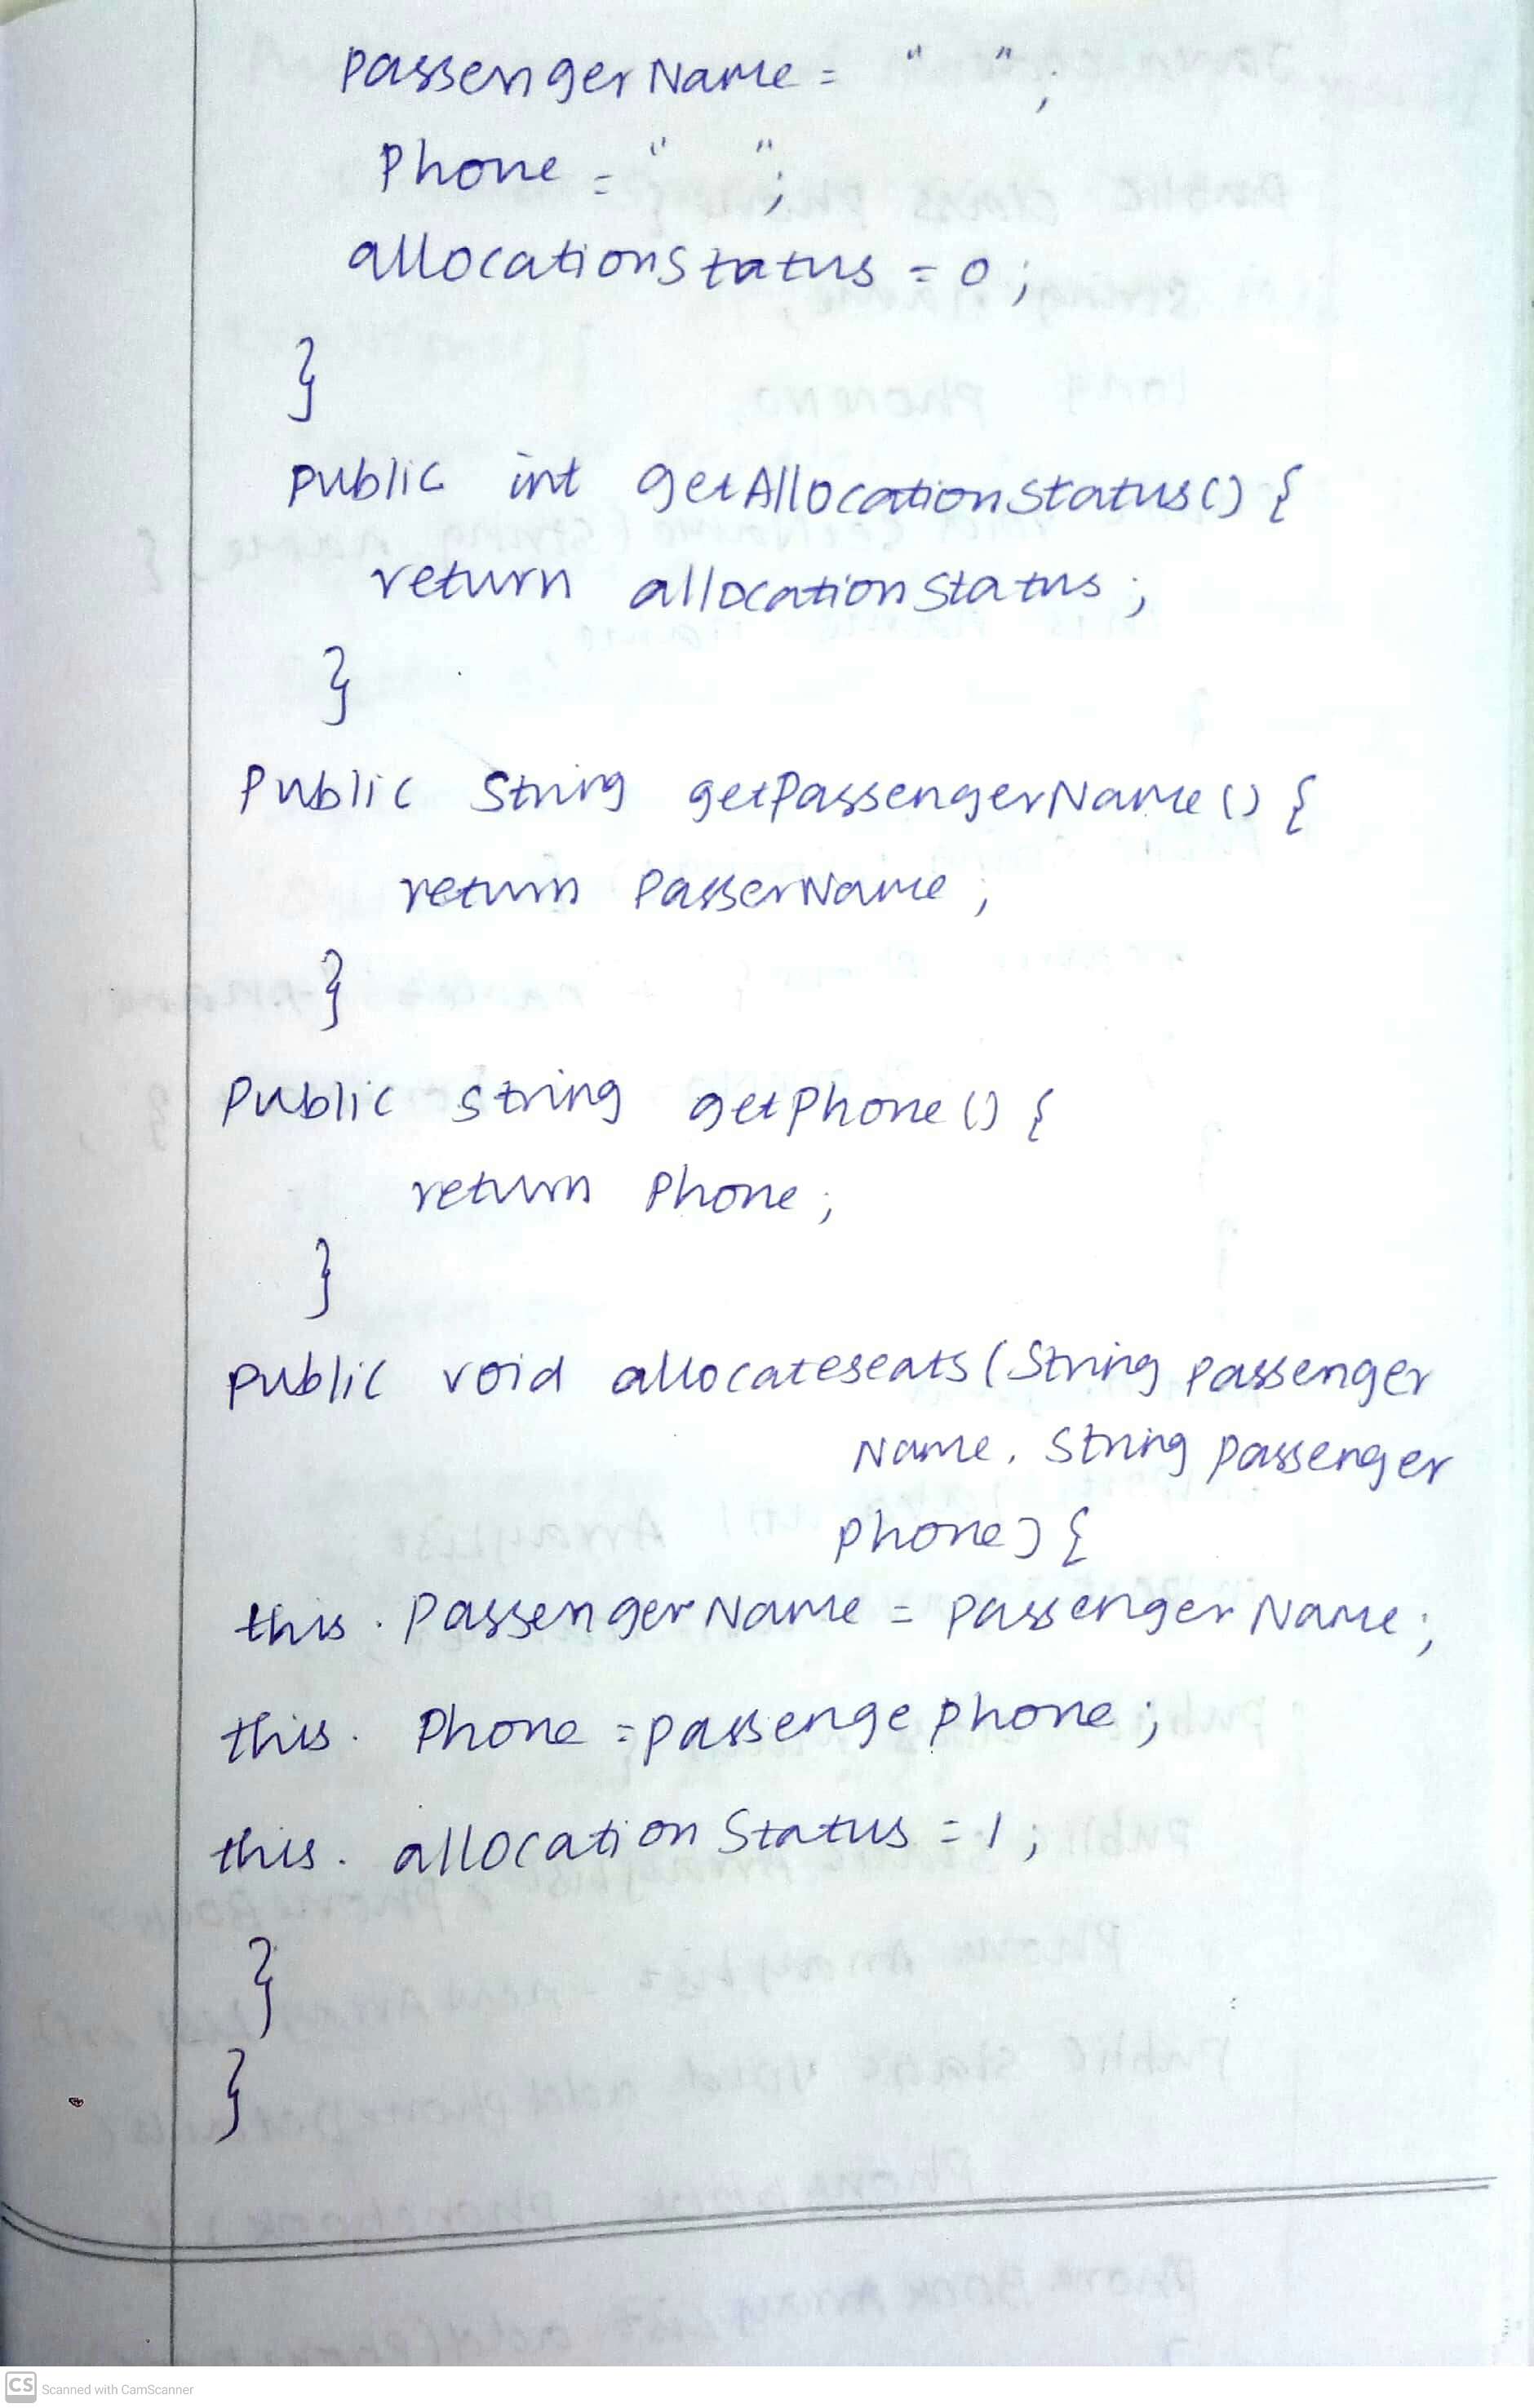 passengerName = " ";
Phone = " ";
allocationStatus = 0;
}
public int getAllocationStatus() {
return allocationStatus;
}
Public String getPassengerName() {
return PasserName;
}
Public String getPhone() {
return Phone;
}
public void allocateseats (String passenger
Name, String passenger
phone) {
this. PassengerName = passengerName;
this. Phone = passengephone;
this. allocationStatus = 1;
}
}
CS Scanned with CamScanner